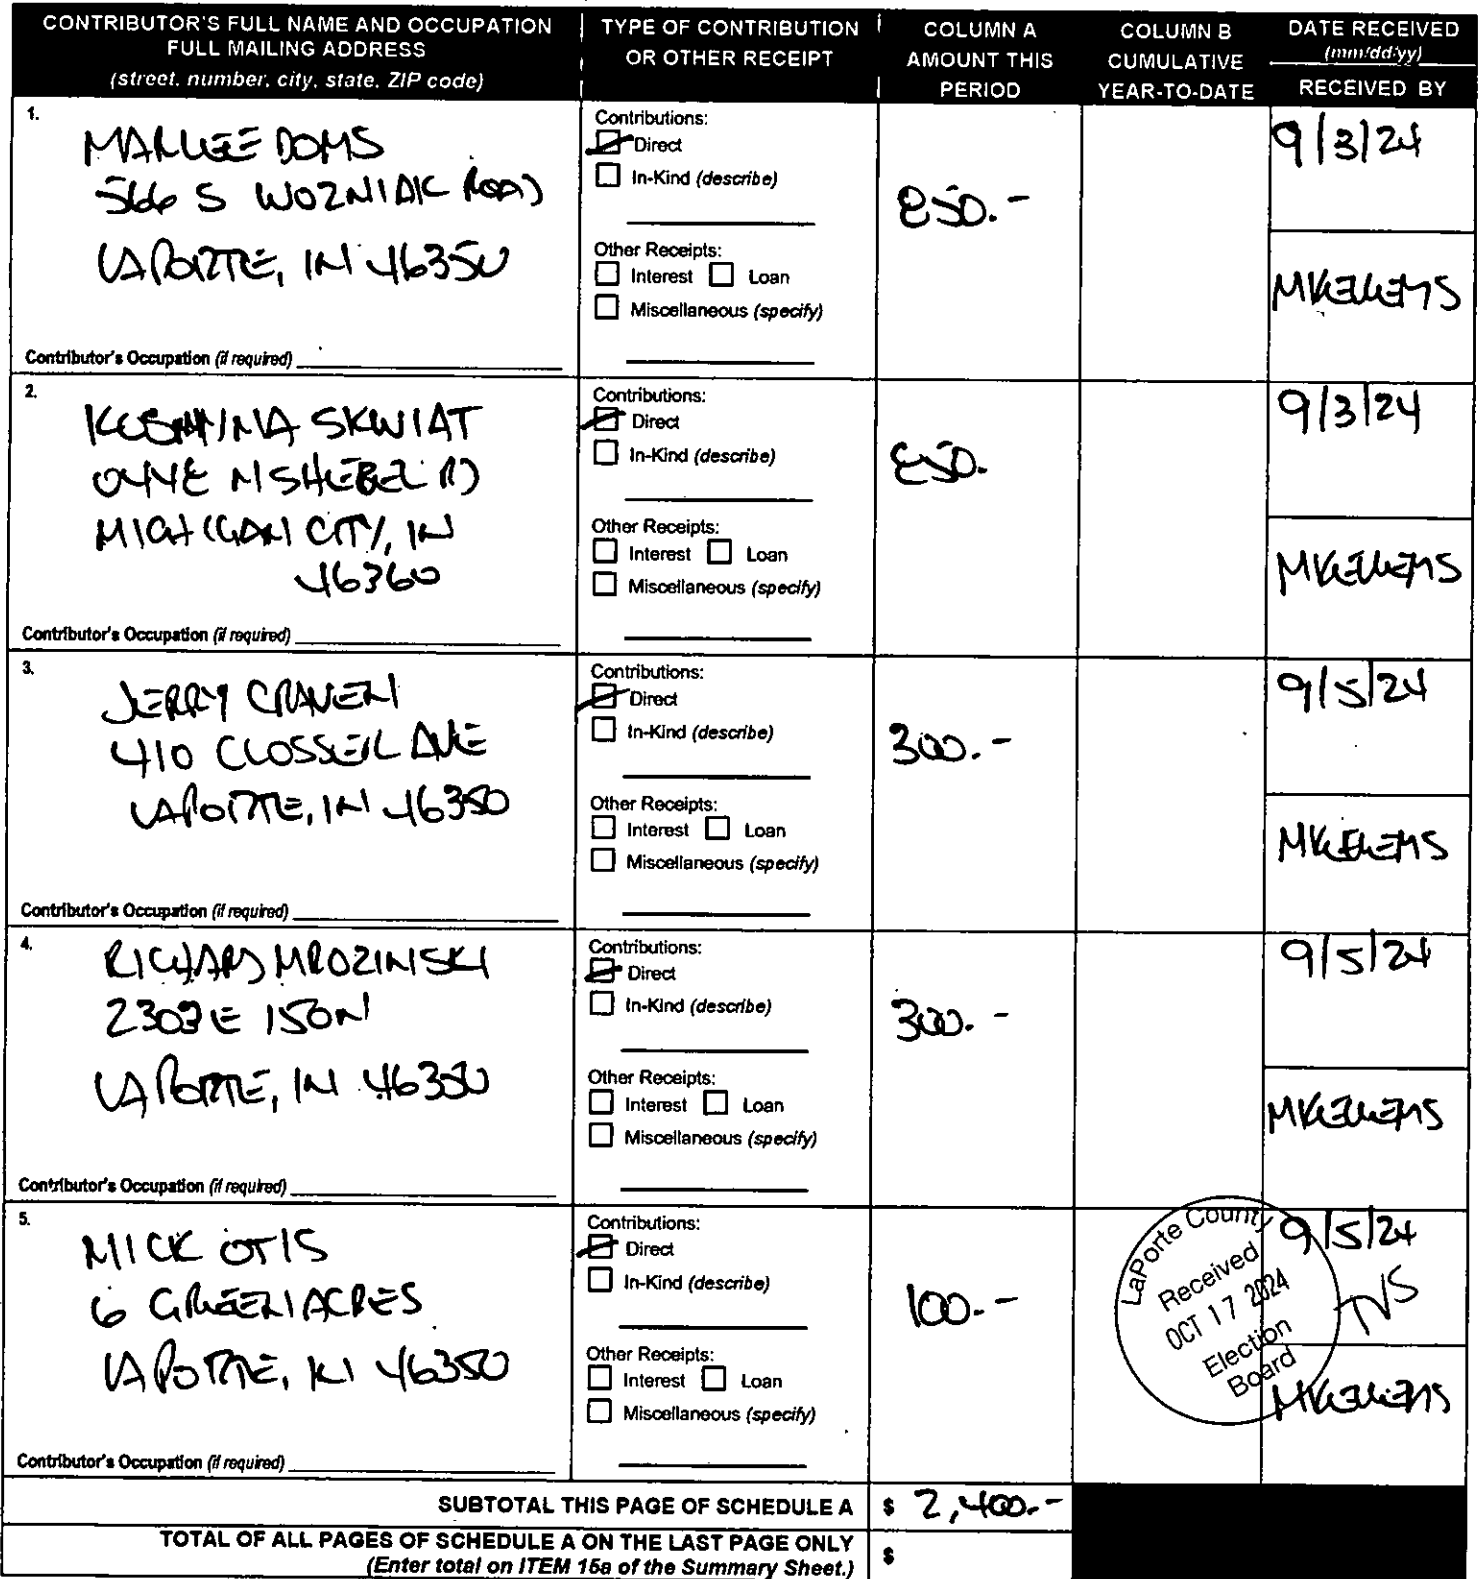 CONTRIBUTOR'S FULL NAME AND OCCUPATION
FULL MAILING ADDRESS
(street, number, city, state, ZIP code)
TYPE OF CONTRIBUTION
OR OTHER RECEIPT
COLUMN A
AMOUNT THIS
PERIOD
COLUMN B
CUMULATIVE
YEAR-TO-DATE
DATE RECEIVED
(mm/dd/yy)
RECEIVED BY
1.
MARLEE DOMS
566 S WOZNIAK ROAD
LAPORTE, IN 46350
Contributor's Occupation (if required)
Contributions:
Direct
In-Kind (describe)
Other Receipts:
Interest Loan
Miscellaneous (specify)
850.-
9/3/24
MKELLEMS
2.
SKWIAT
MICHIGAN CITY, IN
46360
Contributor's Occupation (if required)
Contributions:
Direct
In-Kind (describe)
Other Receipts:
Interest Loan
Miscellaneous (specify)
850.
9/3/24
MKELLEMS
3.
JERRY CRAVEN
410 CLOSSER AVE
LAPORTE, IN 46350
Contributor's Occupation (if required)
Contributions:
Direct
In-Kind (describe)
Other Receipts:
Interest Loan
Miscellaneous (specify)
300.-
9/5/24
MKELLEMS
4.
RICHARD MROZINSKI
2303 E 150N
LAPORTE, IN 46350
Contributor's Occupation (if required)
Contributions:
Direct
In-Kind (describe)
Other Receipts:
Interest Loan
Miscellaneous (specify)
300.-
9/5/24
MKELLEMS
5.
MICK OTIS
6 GREEN ACRES
LAPORTE, IN 46350
Contributor's Occupation (if required)
Contributions:
Direct
In-Kind (describe)
Other Receipts:
Interest Loan
Miscellaneous (specify)
100.-
LaPorte County
Received
OCT 17 2024
Election
Board
9/5/24
TNS
MKELLEMS
SUBTOTAL THIS PAGE OF SCHEDULE A $ 2,400.-
TOTAL OF ALL PAGES OF SCHEDULE A ON THE LAST PAGE ONLY
(Enter total on ITEM 15a of the Summary Sheet.) $